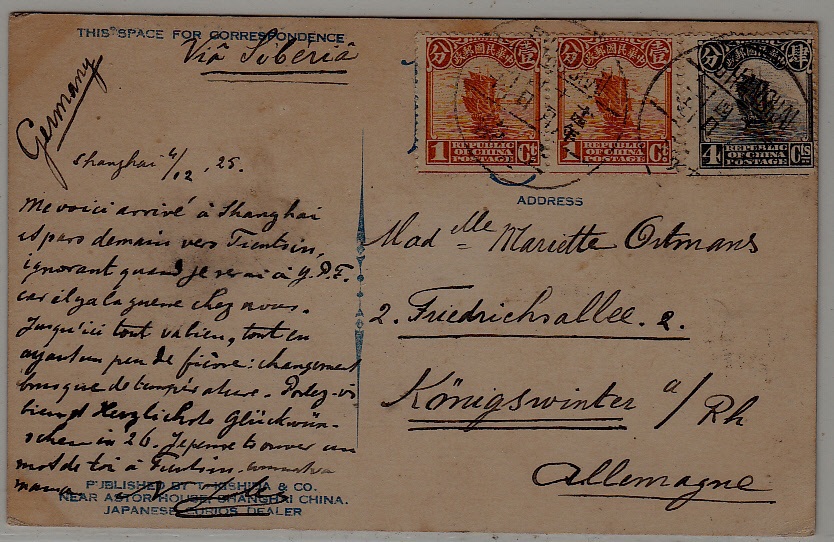 THIS SPACE FOR CORRESPONDENCE
Viâ Sibériâ
Germany
Shanghai 4/12.25.
Me voici arrivé à Shanghai
et pars demain vers Tientsin,
ignorant quand je serai à Y.P.F.
car il y a la guerre chez nous.
Jusqu'ici tout va bien, tout en
ayant un peu de fièvre: changement
brusque de température. Portez-vs
bien et Herzlichste Glückwün-
schen in 26. Je pense trouver un
mot de toi à Tientsin.
maman
PUBLISHED BY T. KISHIDA & CO.
NEAR ASTOR HOUSE, SHANGHAI CHINA.
JAPANESE CURIOS DEALER
分 中華民國郵政 壹
1 REPUBLIC OF CHINA POSTAGE Ct.
分 中華民國郵政 壹
1 REPUBLIC OF CHINA POSTAGE Ct.
分 中華民國郵政 肆
4 REPUBLIC OF CHINA POSTAGE Cts
ADDRESS
Madelle Mariette Ortmans
2. Friedrichsallee. 2.
Königswinter a/Rh
Allemagne